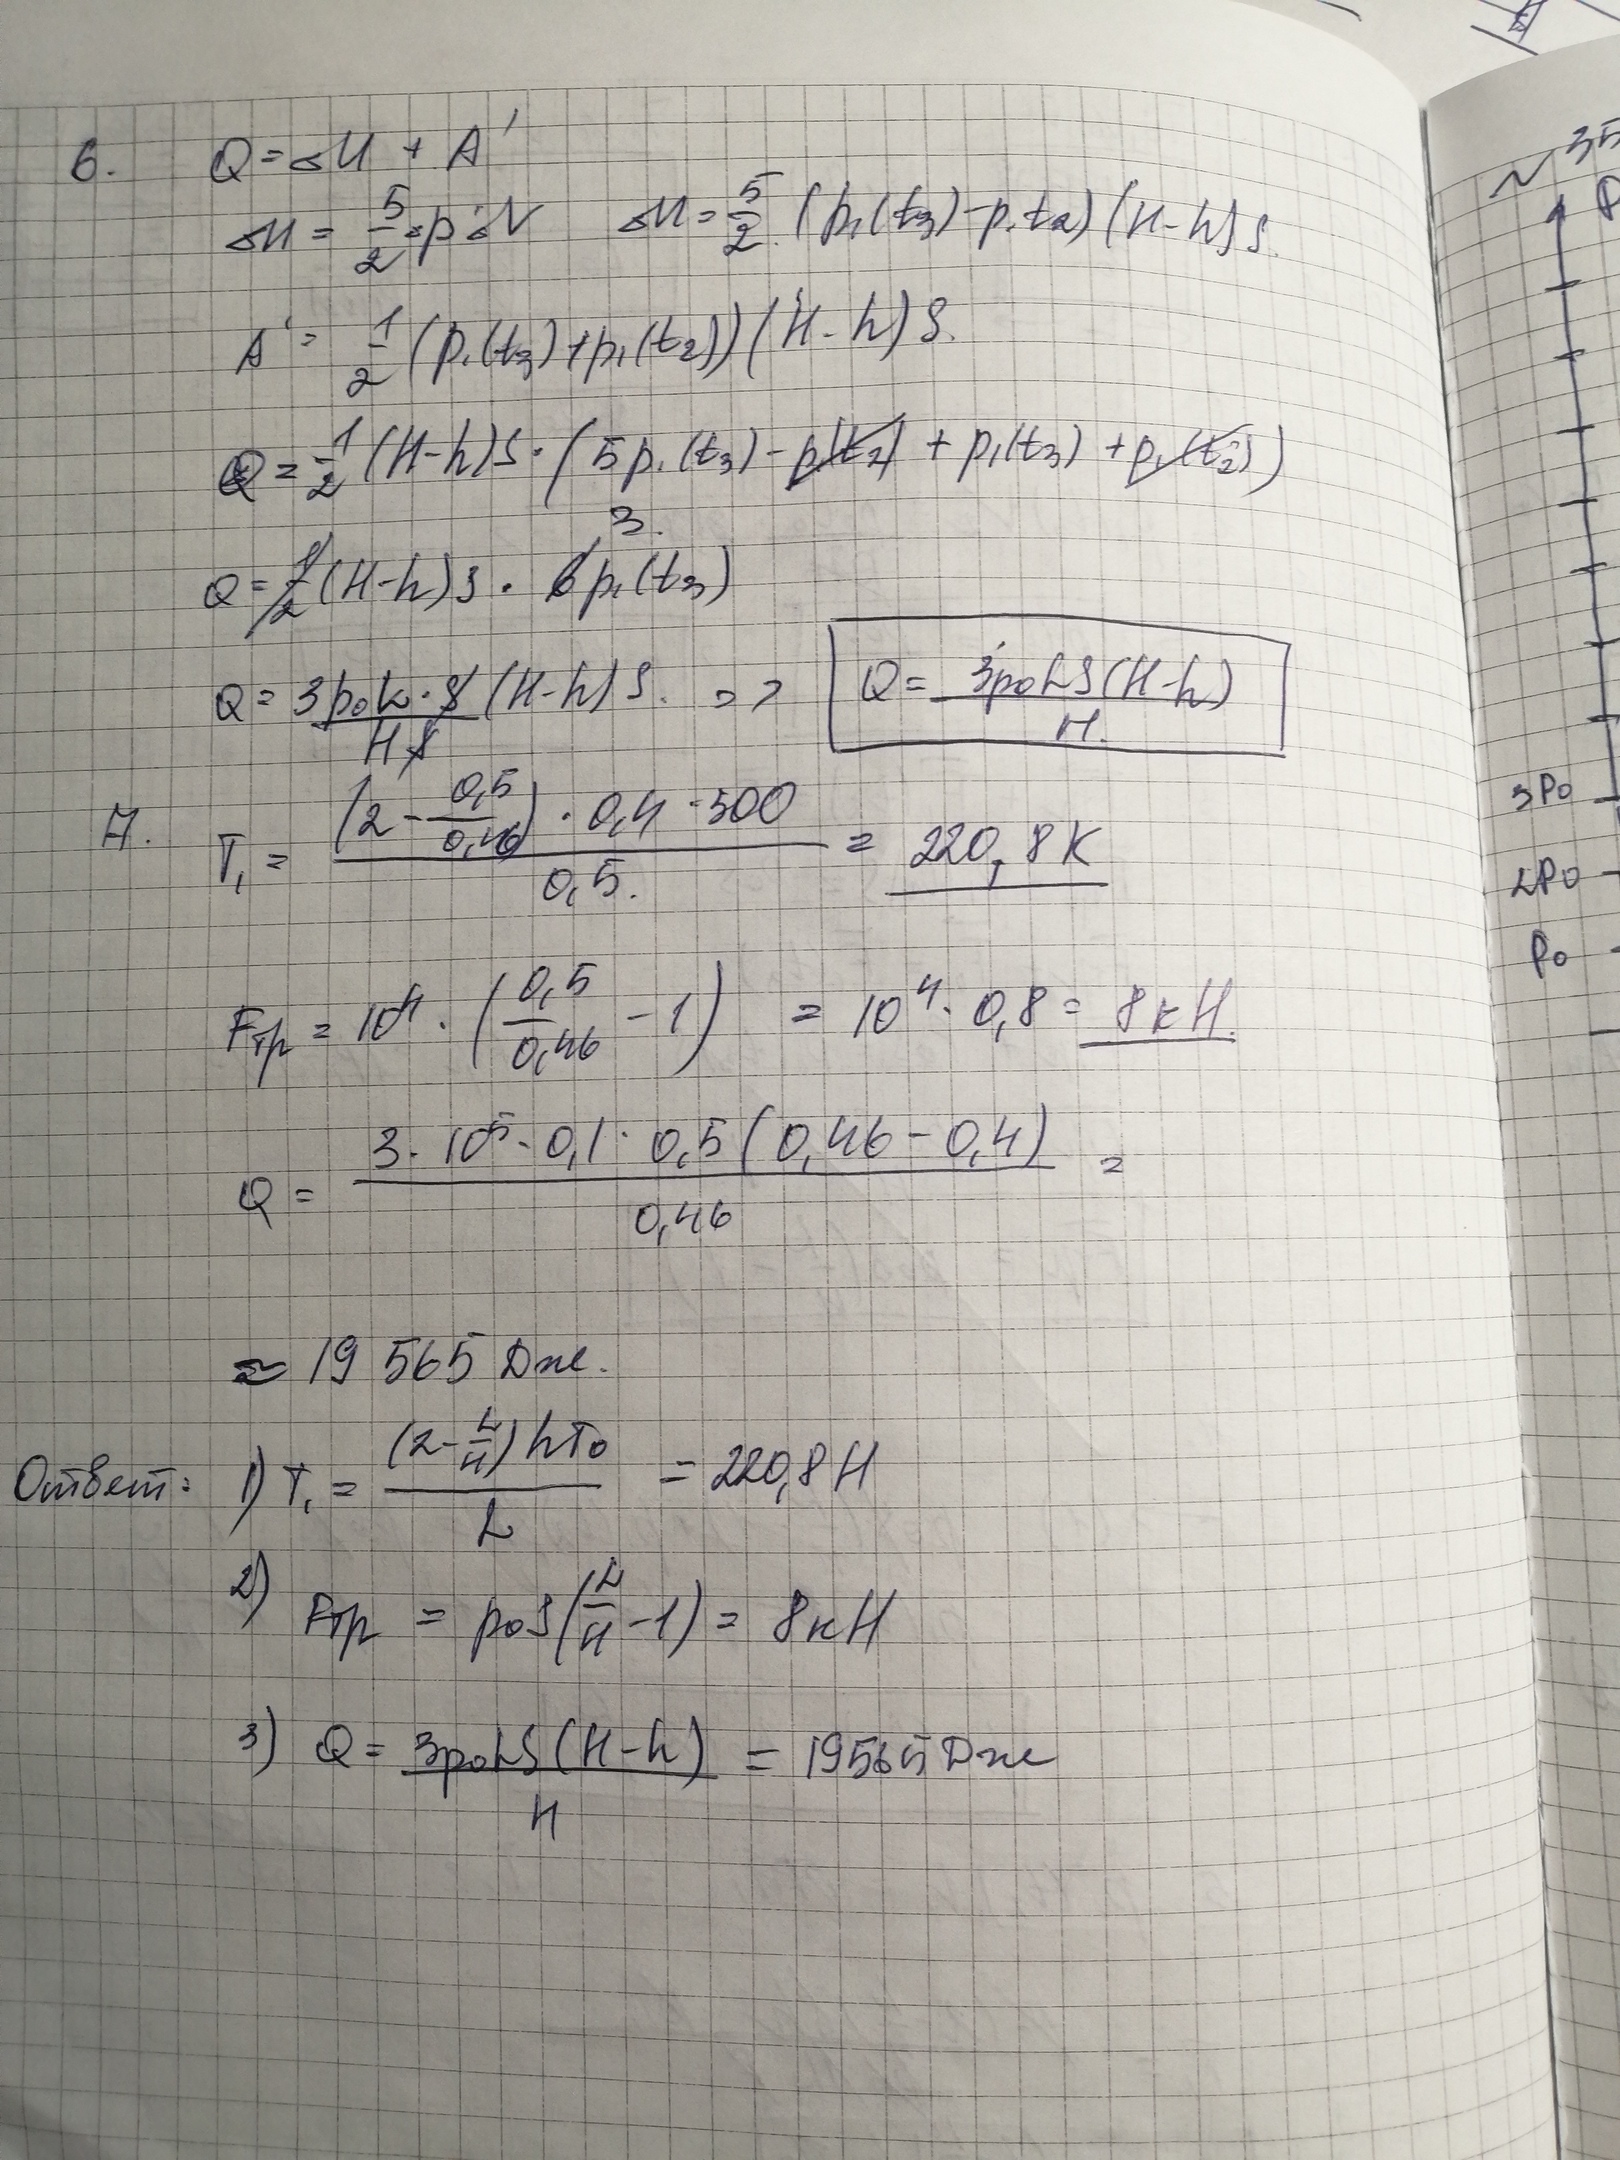 6. Q = ΔU + A'
ΔU = 5/2 · p ΔV ΔU = 5/2 · (p₁(t₃) - p₁t₂) (H-h) S.
A' = 1/2 (p₁(t₃) + p₁(t₂)) (H-h) S.
Q = 1/2 (H-h) S · (5p₁(t₃) - p(t₂) + p₁(t₃) + p₁(t₂))
3.
Q = 1/2 (H-h) S · 6p₁(t₃)
Q = 3p₀L·S/HS (H-h) S. => Q = 3p₀LS(H-h)/H.
7. T₁ = (2 - 0,5/0,46) · 0,4 · 300 / 0,5. = 220,8 К
Fтр = 10⁴ · (0,5/0,46 - 1) = 10⁴ · 0,8 = 8 кН.
Q = 3 · 10⁵ · 0,1 · 0,5 (0,46 - 0,4) / 0,46 =
≈ 19 565 Дж.
Ответ: 1) T₁ = (2 - L/H) hT₀ / L = 220,8 Н
2) Fтр = p₀S(L/H - 1) = 8 кН
3) Q = 3p₀LS(H-h)/H = 19565 Дж
~ 35
P
3P₀
2P₀
P₀